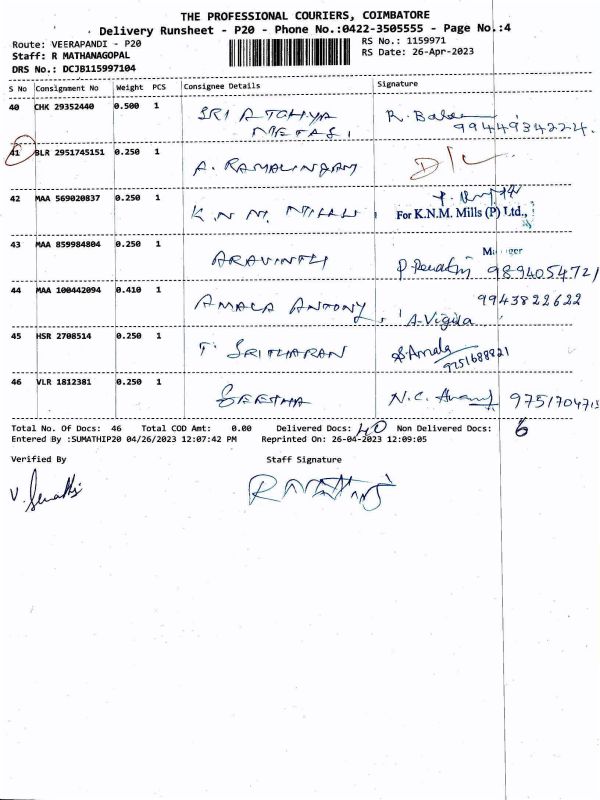 THE PROFESSIONAL COURIERS, COIMBATORE
Delivery Runsheet - P20 - Phone No.:0422-3505555 - Page No.:4
Route: VEERAPANDI - P20
RS No.: 1159971
Staff: R MATHANAGOPAL
RS Date: 26-Apr-2023
DRS No.: DCJB115997104
S No Consignment No Weight PCS Consignee Details Signature
40 CHK 29352440 0.500 1 SRI ATCHYA R. Balan
METAS. 9944934224.
41 BLR 2951745151 0.250 1 A. RAMALINGAM D/L
42 MAA 569020837 0.250 1 K.N.M. MILLS For K.N.M. Mills (P) Ltd.,
43 MAA 859984804 0.250 1 ARAVINTH 9894054721
44 MAA 100442094 0.410 1 AMALA ANTONY 9943822622
A-Vigila
45 HSR 2708514 0.250 1 T. SRITHARAN S.Amala
9751688821
46 VLR 1812381 0.250 1 GEETHA N.C. 9751704715
Total No. Of Docs: 46 Total COD Amt: 0.00 Delivered Docs: 40 Non Delivered Docs: 6
Entered By :SUMATHIP20 04/26/2023 12:07:42 PM Reprinted On: 26-04-2023 12:09:05
Verified By Staff Signature